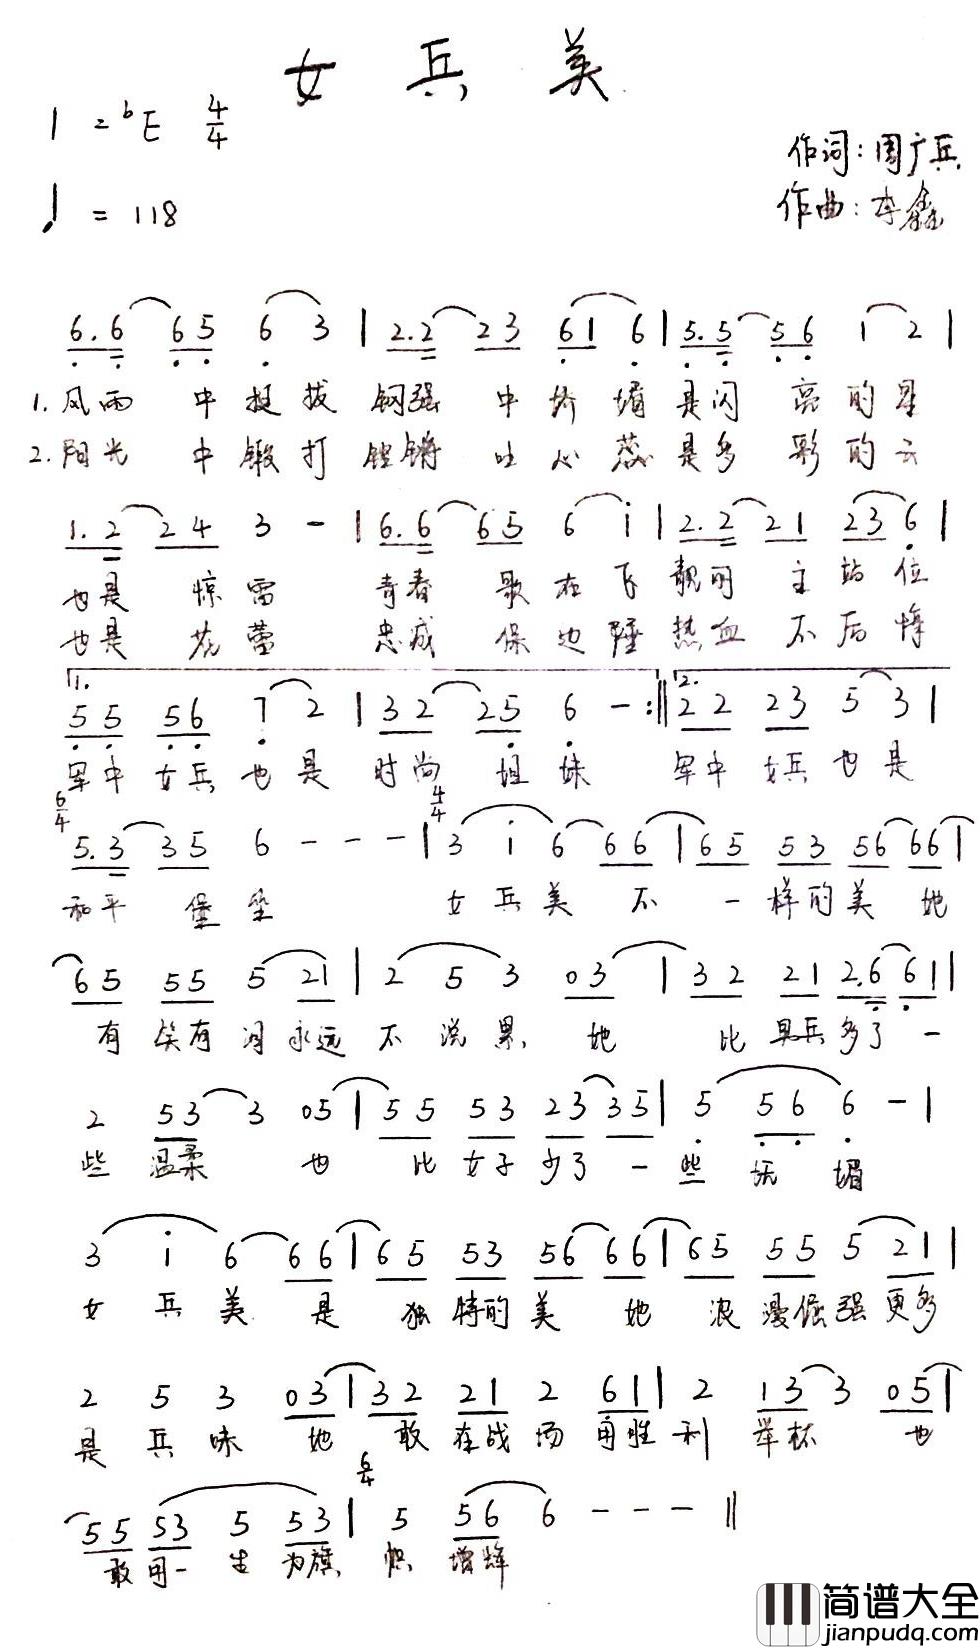 女兵美
1=♭E 4/4
作词:周广兵
♩=118
作曲:李鑫
6. 6 6 5 6 3 | 2. 2 2 3 6 1 6 | 5. 5 5 6 1 2 |
1.风雨 中挺拔 钢强 中娇媚 是闪 亮的星
2.阳光 中锻打 铿锵 吐心蕊 是多 彩的云
1. 2 2 4 3 - | 6. 6 6 5 6 i | 2. 2 2 1 2 3 6 |
也是 惊雷 青春 歌在飞 靓丽 主站位
也是 花蕾 忠诚 保边陲 热血 不后悔
1. 2.
5 5 5 6 7 2 | 3 2 2 5 6 - :‖ 2 2 2 3 5 3 |
军中 女兵 也是 时尚 姐妹 军中 女兵 也是
6/4 4/4
5. 3 3 5 6 - - - | 3 i 6 6 6 | 6 5 5 3 5 6 6 6 |
和平 堡垒 女兵美 不 一样的美 她
6 5 5 5 5 2 1 | 2 5 3 0 3 | 3 2 2 1 2. 6 6 1 |
有 笑有泪永远 不说累 她 比男兵多了一
2 5 3 3 0 5 | 5 5 5 3 2 3 3 5 | 5 5 6 6 - |
些 温柔 也 比女子少了一 些 妩媚
3 i 6 6 6 | 6 5 5 3 5 6 6 6 | 6 5 5 5 5 2 1 |
女兵美 是 独特的美 她 浪漫倔强更多
2 5 3 0 3 | 3 2 2 1 2 6 1 | 2 1 3 3 0 5 |
是兵味 她 敢在战场用胜利 举杯 也
6/4
5 5 5 3 5 5 3 | 5 5 6 6 - - - ‖
敢用一生为旗 帜 增辉
简谱大全
jianpudq.com